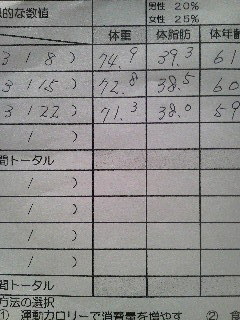 的な数値
男性 20%
女性 25%
体重 体脂肪 体年齢
3 1 8 ) 74.9 39.3 61
3 1 15 ) 72.8 38.5 60
3 1 22 ) 71.3 38.0 59
/ )
間トータル
/ )
/ )
/ )
/ )
間トータル
方法の選択
① 運動カロリーで消費量を増やす ② 食